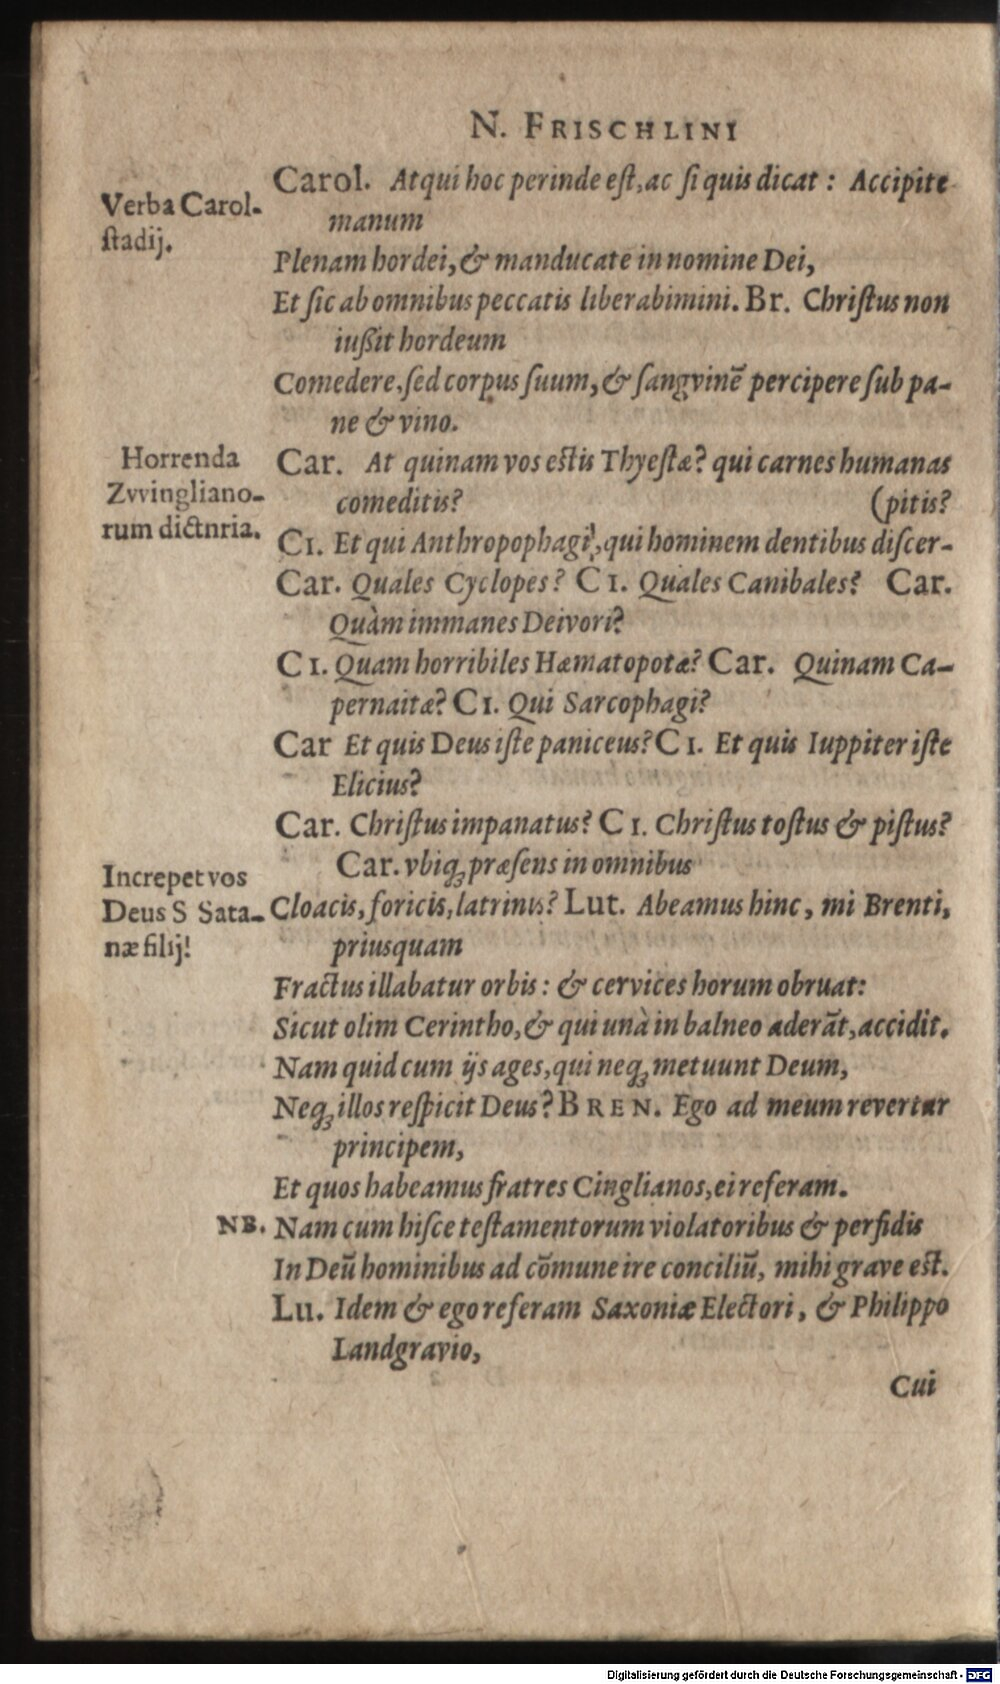 N. FRISCHLINI
Carol. Atqui hoc perinde eſt, ac ſi quis dicat : Accipite
manum
Verba Carol-
ſtadij.
Plenam hordei, & manducate in nomine Dei,
Et ſic ab omnibus peccatis liberabimini. Br. Chriſtus non
iußit hordeum
Comedere, ſed corpus ſuum, & ſangvinē percipere ſub pa-
ne & vino.
Horrenda
Zvvingliano-
rum dictnria.
Car. At quinam vos eſtis Thyeſtæ? qui carnes humanas
comeditis? (pitis?
CI. Et qui Anthropophagi, qui hominem dentibus diſcer-
Car. Quales Cyclopes? CI. Quales Canibales? Car.
Quàm immanes Deivori?
CI. Quam horribiles Hæmatopotæ? Car. Quinam Ca-
pernaitæ? CI. Qui Sarcophagi?
Car Et quis Deus iſte paniceus? CI. Et quis Iuppiter iſte
Elicius?
Car. Chriſtus impanatus? CI. Chriſtus toſtus & piſtus?
Car. vbiq; præſens in omnibus
Increpet vos
Deus S Sata-
næ filij!
Cloacis, foricis, latrinis? Lut. Abeamus hinc, mi Brenti,
priusquam
Fractus illabatur orbis : & cervices horum obruat:
Sicut olim Cerintho, & qui unà in balneo aderāt, accidit.
Nam quid cum ijs ages, qui neq; metuunt Deum,
Neq; illos reſpicit Deus? BREN. Ego ad meum revertar
principem,
Et quos habeamus fratres Cinglianos, ei referam.
NB. Nam cum hiſce teſtamentorum violatoribus & perfidis
In Deū hominibus ad cōmune ire conciliū, mihi grave eſt.
Lu. Idem & ego referam Saxoniæ Electori, & Philippo
Landgravio,
Cui
Digitalisierung gefördert durch die Deutsche Forschungsgemeinschaft - DFG